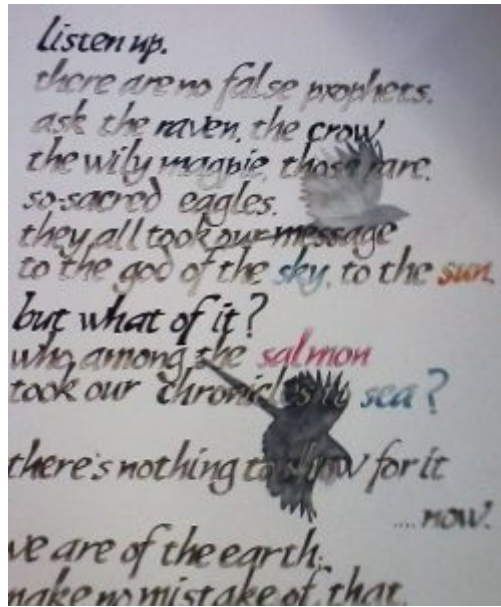 listen up.
there are no false prophets.
ask the raven, the crow
the wily magpie, those rare,
so-sacred eagles.
they all took our message
to the god of the sky, to the sun.
but what of it?
who among the salmon
took our chronicles sea?
there's nothing to show for it
.... now.
we are of the earth;
make no mistake of that